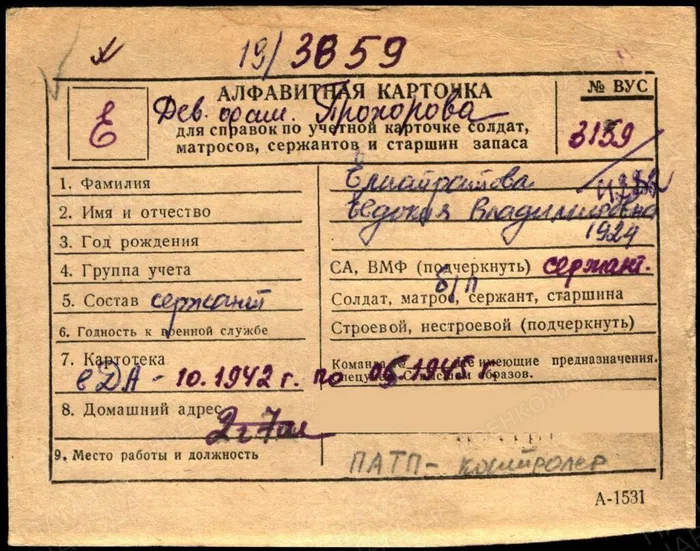 19/3859
АЛФАВИТНАЯ КАРТОЧКА
№ ВУС
Е
Дев. фам. Прохорова
для справок по учетной карточке солдат,
матросов, сержантов и старшин запаса
3159
1. Фамилия
2. Имя и отчество
Евдокия Владимировна
3. Год рождения
1924
4. Группа учета
СА, ВМФ (подчеркнуть) сержант.
5. Состав сержант
б/п
Солдат, матрос, сержант, старшина
6. Годность к военной службе
Строевой, нестроевой (подчеркнуть)
7. Картотека
Команда не имеющие предназначения.
образов.
СДА - 10.1942 г. по 05.1945 г.
8. Домашний адрес
9. Место работы и должность
ПАТП - контролер
А-1531